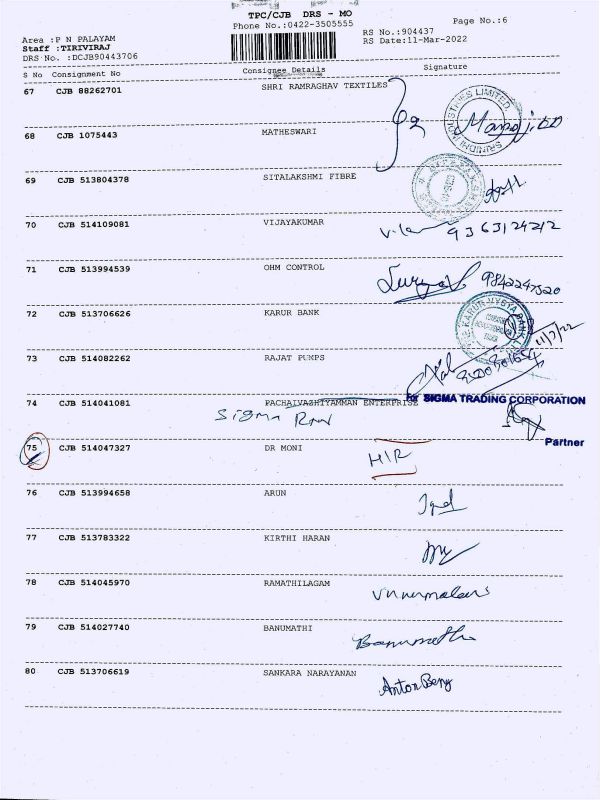 TPC/CJB DRS - MO
Phone No.:0422-3505555
Page No.:6
Area :P N PALAYAM
RS No.:904437
Staff :TIRIVIRAJ
RS Date:11-Mar-2022
DRS No. :DCJB90443706
S No Consignment No Consignee Details Signature
67 CJB 88262701 SHRI RAMRAGHAV TEXTILES
68 CJB 1075443 MATHESWARI
69 CJB 513804378 SITALAKSHMI FIBRE
70 CJB 514109081 VIJAYAKUMAR
9363124212
71 CJB 513994539 OHM CONTROL
9842247520
72 CJB 513706626 KARUR BANK
73 CJB 514082262 RAJAT PUMPS
11/3/22
74 CJB 514041081 PACHAIVAZHIYAMMAN ENTERPRISE
For SIGMA TRADING CORPORATION
Sigma
Partner
75 CJB 514047327 DR MONI
H/R
76 CJB 513994658 ARUN
77 CJB 513783322 KIRTHI HARAN
78 CJB 514045970 RAMATHILAGAM
79 CJB 514027740 BANUMATHI
Banumathi
80 CJB 513706619 SANKARA NARAYANAN
Anton Beny